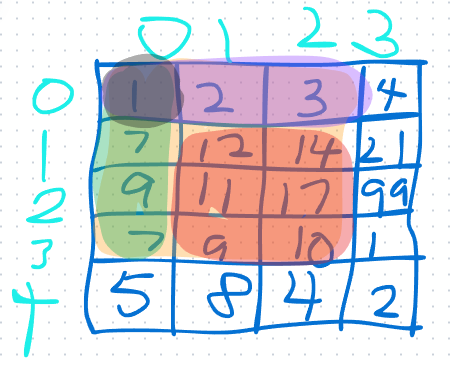 0 1 2 3
0 1 2 3 4
1 7 12 14 21
2 9 11 17 99
3 7 9 10 1
4 5 8 4 2